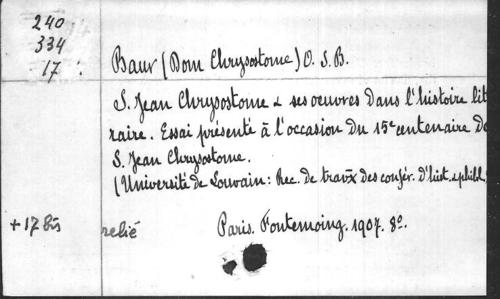 240
334
17
Baur (Dom Chrysostome) O. S. B.
S. Jean Chrysostome & ses oeuvres dans l'histoire lit
raire. Essai présenté à l'occasion du 15e centenaire de
S. Jean Chrysostome.
(Université de Louvain: Rec. de travx des confér. d'hist. & phill.
+ 17 bis relié Paris. Fontemoing. 1907. 8o.